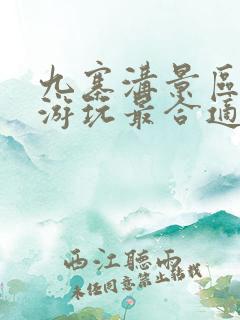 九寨溝景區
游玩最合適
西江聽雨
未经同意禁止转载